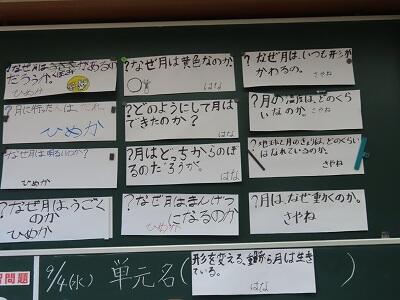 なぜ月は
だろうか。
ひめか
?なぜ月は黄色なのか。
はな
?なぜ月は、いつも形が
かわるの。
さやね
?月に行った人は、だれ。
ひめか
?どのようにして月は
できたのか?
はな
?月の温度は、どのくら
いなのか。
さやね
なぜ月は明るいのか?
ひめか
?月はどっちからのぼ
るのだろうか。
はな
?地球と月のきょりは、どのくらい
はなれているのか。
さやね
?なぜ月は、うごく
のか
ひめか
?なぜ月はまんげつ
になるのか
ひめか
?月は、なぜ動くのか。
さやね
習問題
9/4(水) 単元名(
形を変える、
月は生き
ている。
はな
)